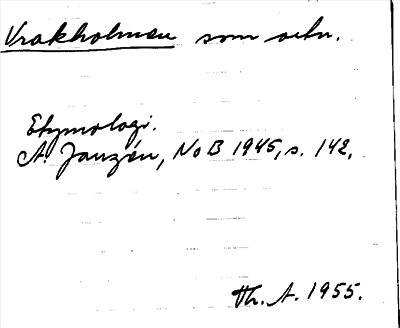 Vrakholmen som ortn.
Etymologi.
A. Janzén, NoB 1945, s. 142.
Th. A. 1955.